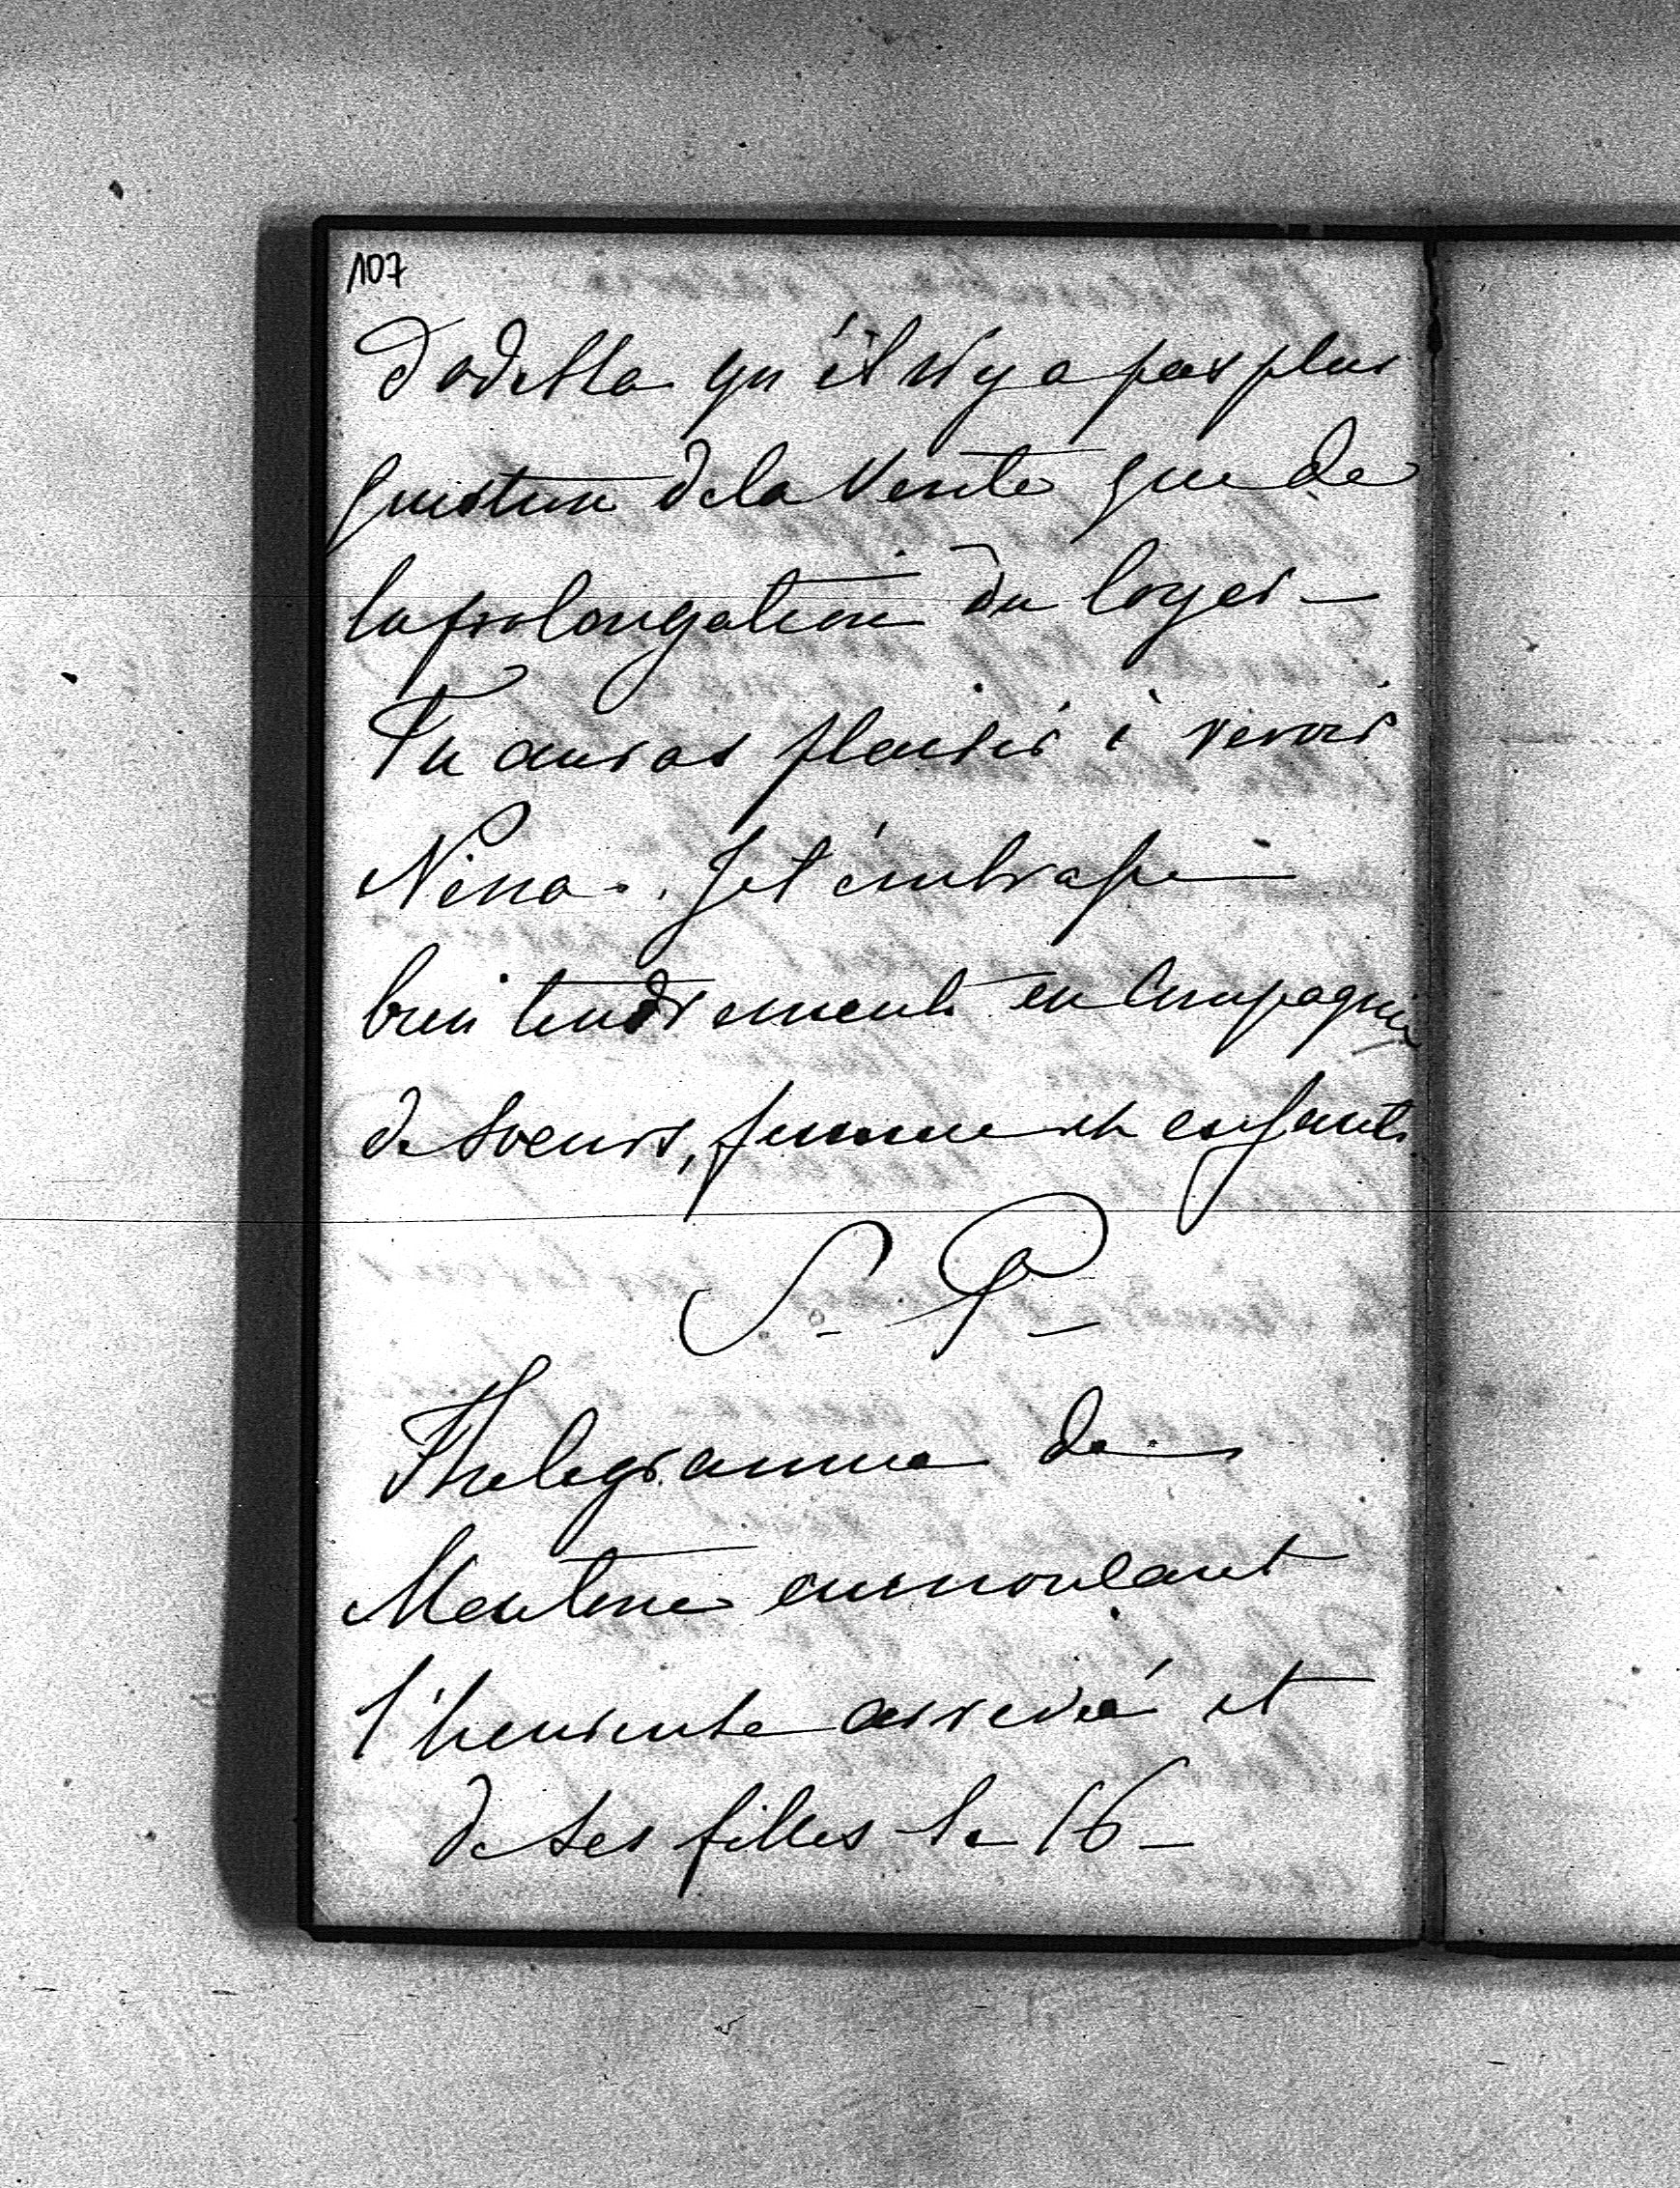 107
d'Odetta qu'il n'y a pas plus
question de la Vente que de
la prolongation du loyer —
Tu auras plaisir à revoir
Nina. Je t'embrasse
bien tendrement en compagnie
de soeurs, femme et enfants
S. P.
Thelegramme de
Mentone annoncant
l'heureuse arrivée et
de ses filles le 16 —